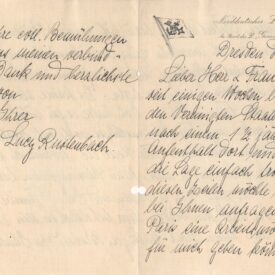 hre voll. Bemühungen
meinen verbind-
Dank und herzlichste
von
Ihrer
Lucy Rustenbach.
Norddeutscher
Dresden
Liebe Herr & Frau
seit einigen Wochen b
den Vereinigten Staate
nach einen 1 ½ Jahr
Aufenthalt dort und
die Lage einfach
diesen Zeilen möchte
bei Ihnen anfragen
für mich geben kön